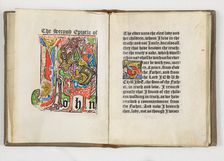 The Second Epistle of
John
The elder unto the elect lady and
her children, whom I love in the
truth; and not I only, but also all
they that have known the truth;
for the truth's sake, which
dwelleth in us, and shall be
with us for ever.
Grace be with you, mercy,
and peace, from God
the Father, and from
the Lord JESUS
CHRIST, the Son of the Father,
in truth and love. I rejoiced
greatly that I found of thy children
walking in truth, as we have
received a commandment from
the Father. And now I beseech
thee, lady, not as though I wrote